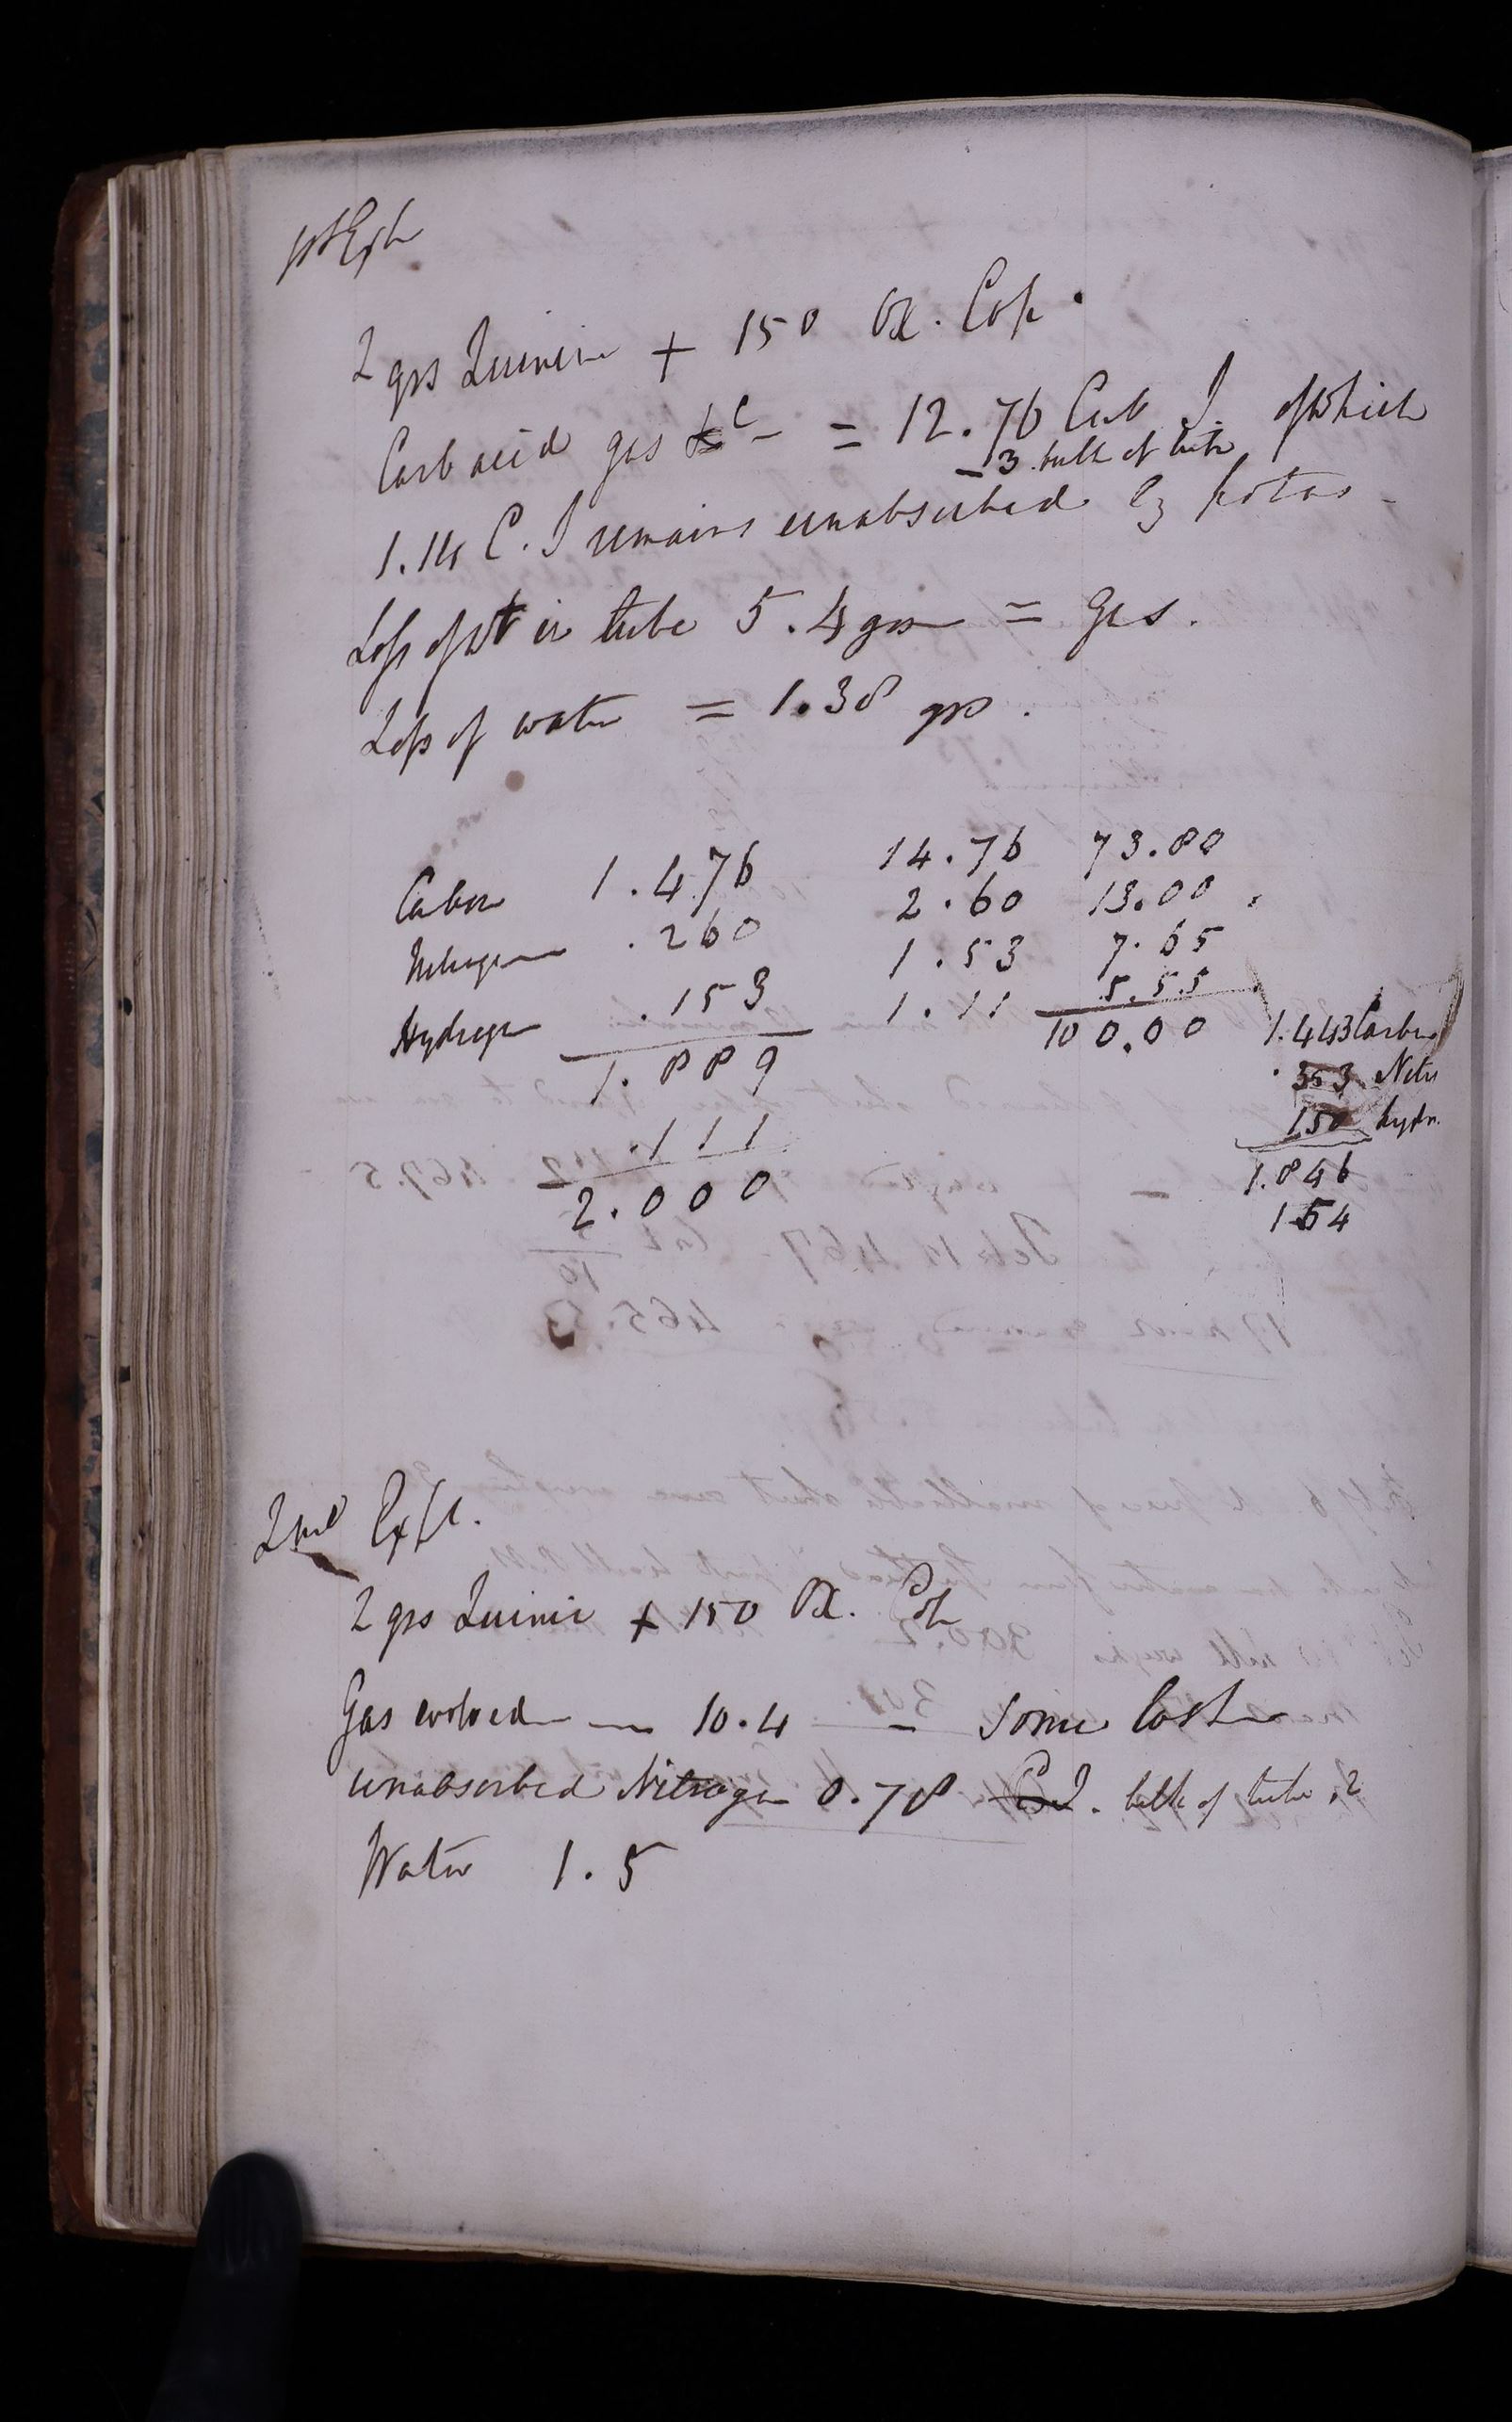 1st Expt
2 grs Quinine + 150 Ox. Cop.
Carb acid gas &c - = 12.76 Cub I. of which
- .3 bulk of tube
1.14 C. I remains unabsorbed by potas -
Loss of wt in tube 5.4 grs = gas.
Loss of water = 1.38 grs.
Carbon 1.476 14.76 73.80
Nitrogen .260 2.60 13.00
Hydrogen .153 1.53 7.65
1.889 1.11 5.55
100.00
.111
2.000
1.443 Carbon
.353 Nitr
150 hydn.
1.846
154
2nd Expt.
2 grs Quinine + 150 Ox. Cop
Gas evolved — 10.4 - some lost
unabsorbed Nitrogen 0.78 C. I. bulk of tube .2
Water 1.5